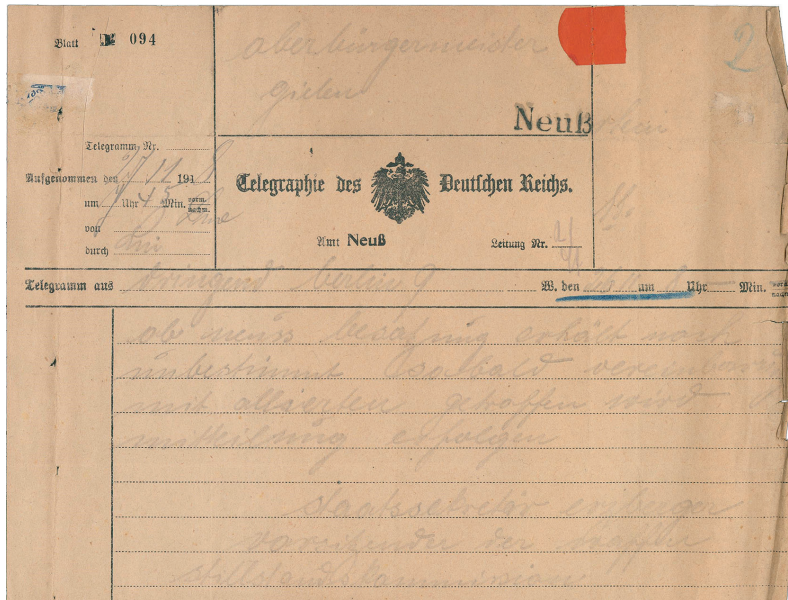 Blatt 094
oberbürgermeister
gielen
Neuß
2
Telegramm, Nr.
Aufgenommen den 27/11 1918
um 9 Uhr 45 Min. vorm. nachm.
von
durch
Telegraphie des Deutschen Reichs.
Amt Neuß
Leitung Nr.
Telegramm aus dringend berlin 9 W. den um Uhr Min.
ob neuss besatzung erhält noch
unbestimmt sobald vereinbarung
mit alliierten getroffen wird
mitteilung erfolgen
staatssekretär erzberger
vorsitzender der waffen
stillstandskommission